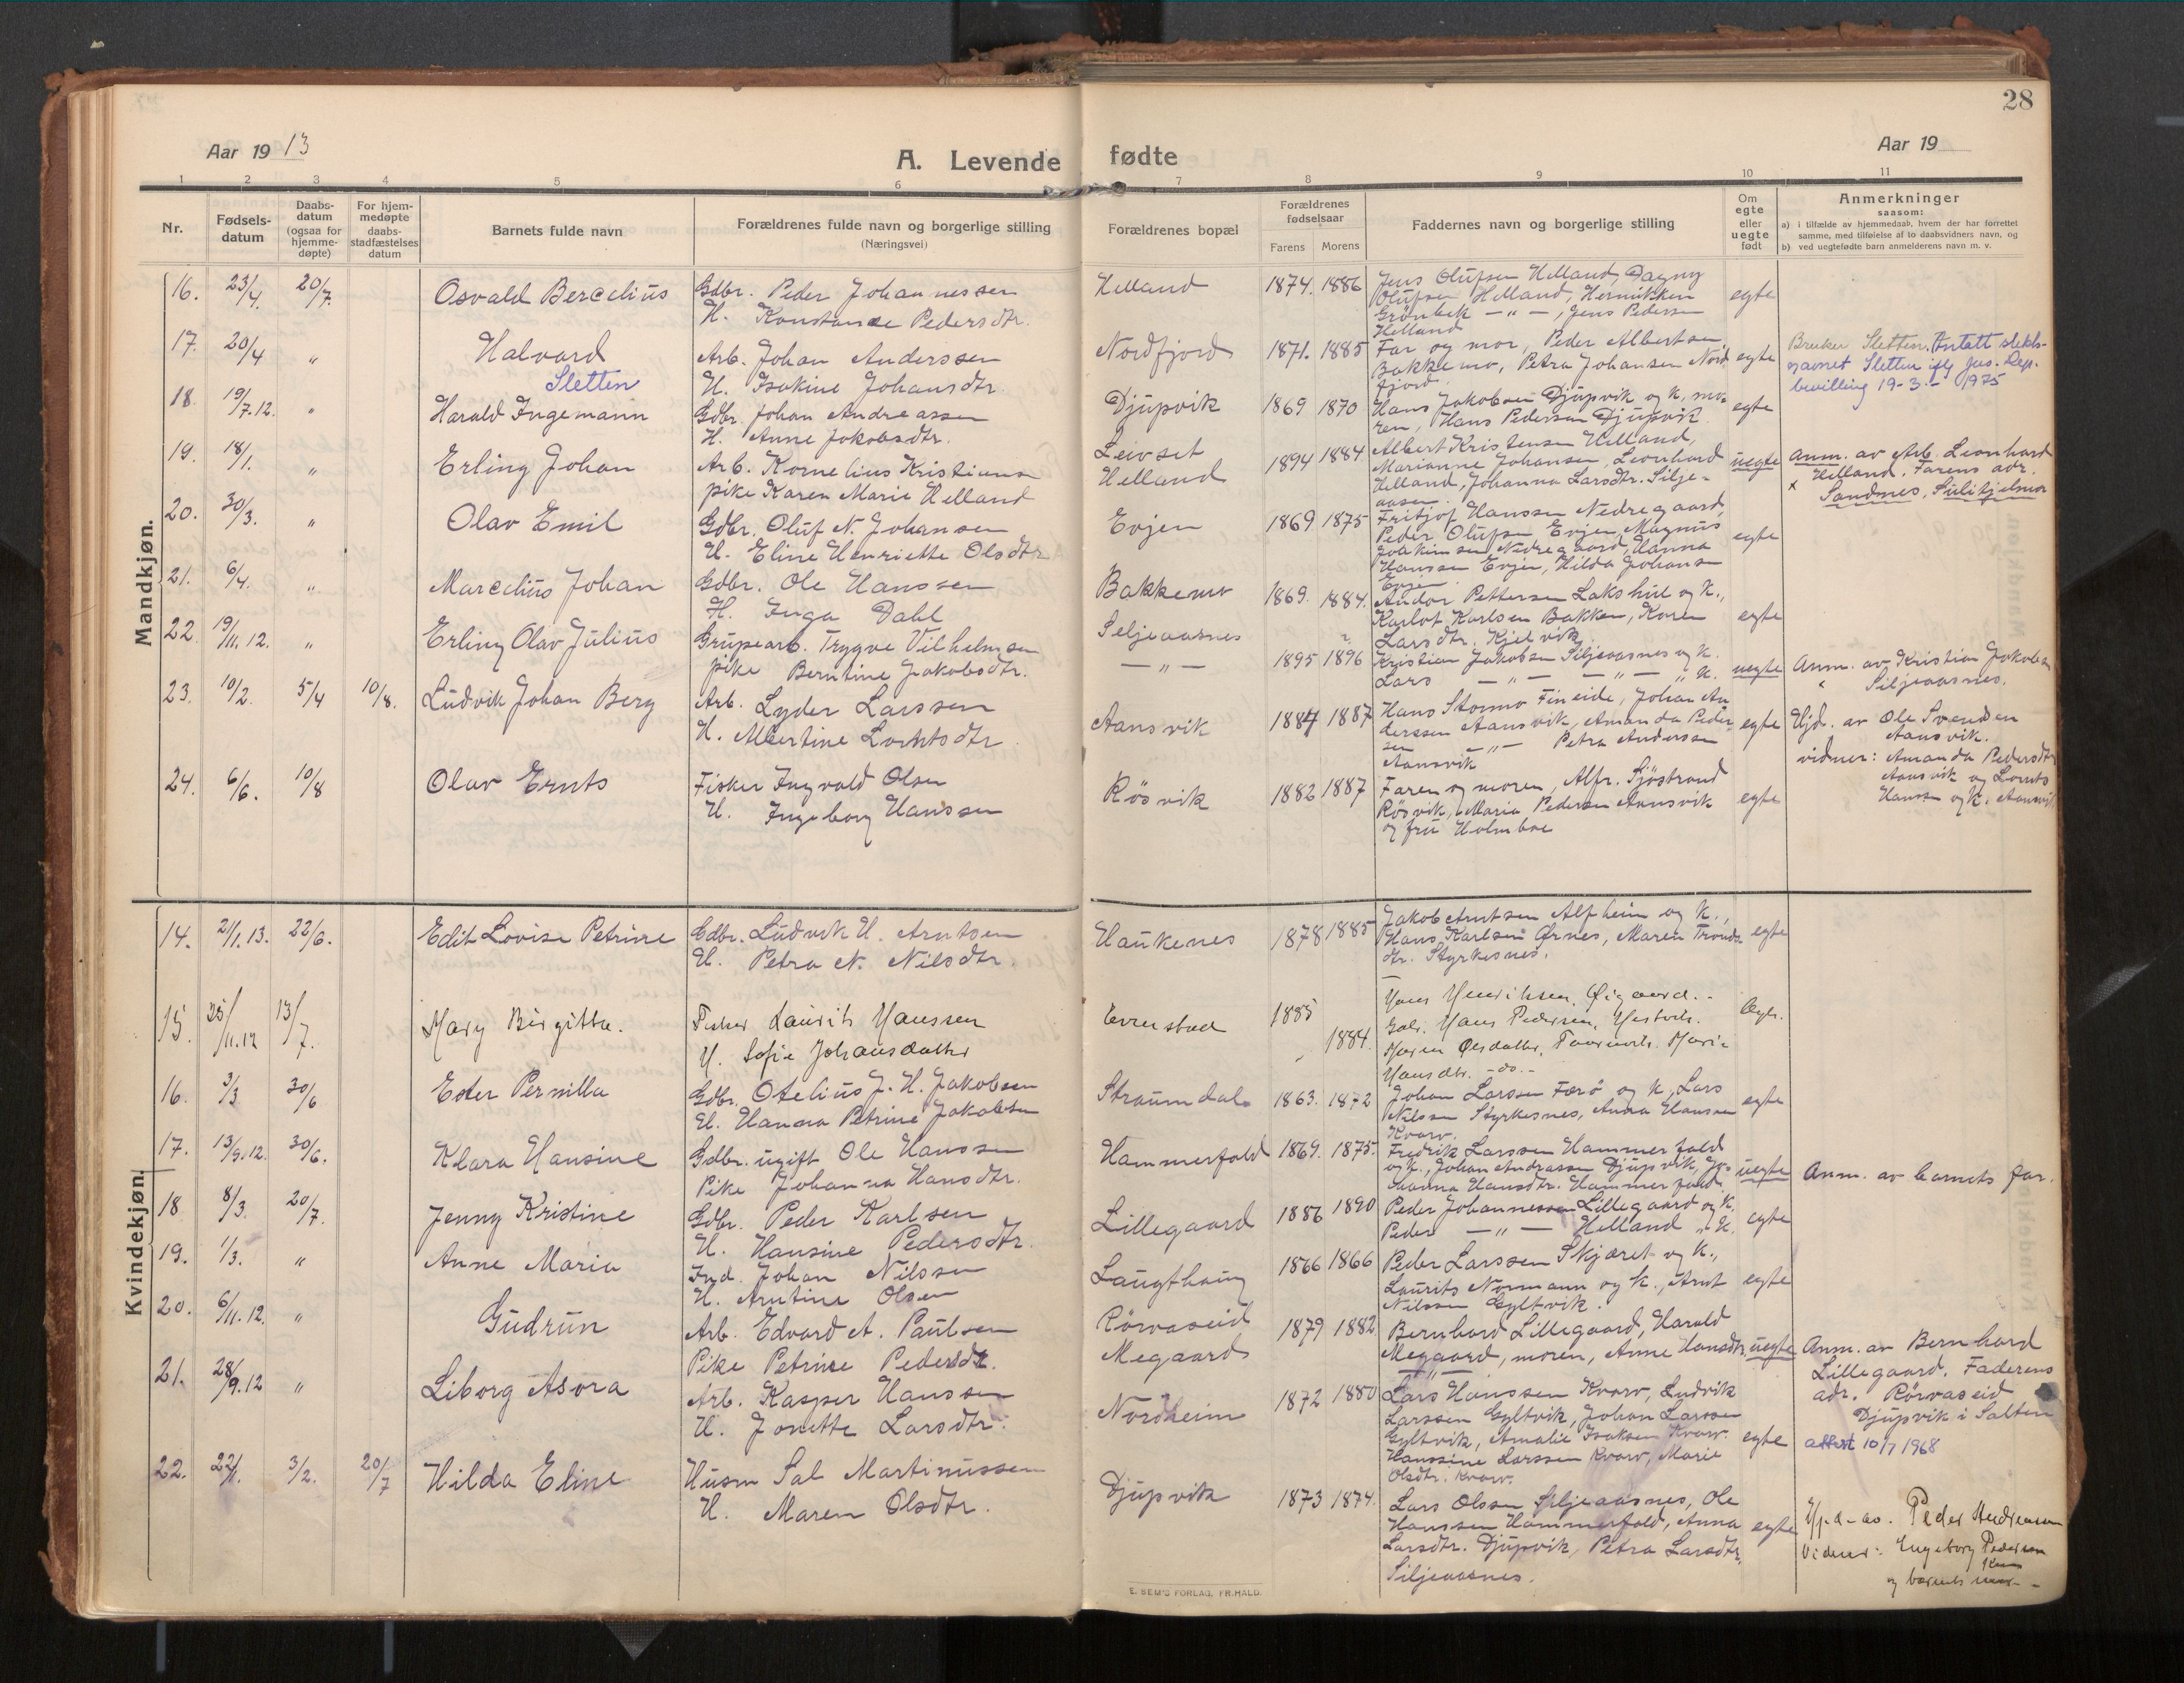 28
Aar 1913
A. Levende fødte
Aar 19
1 2 3 4 5 6 7 8 9 10 11
Nr.
Fødsels-
datum
Daabs-
datum
(ogsaa for
hjemme-
døpte)
For hjem-
medøpte
daabs-
stadfæstelses
datum
Barnets fulde navn
Forældrenes fulde navn og borgerlige stilling
(Næringsvei)
Forældrenes bopæl
Forældrenes
fødselsaar
Farens Morens
Faddernes navn og borgerlige stilling
Om
egte
eller
uegte
født
Anmerkninger
saasom:
a) i tilfælde av hjemmedaab, hvem der har forrettet
samme, med tilføielse af to daabsvidners navn, og
b) ved uegtefødte barn anmelderens navn m. v.
Mandkjøn.
16. 23/4. 20/7. Osvald Bercelius
Gdbr. Peder Johannessen
H. Konstanse Pedersdtr.
Helland 1874. 1886
Jens Olufsen Helland, Dagny
Olufsen Helland, Hernikken
Grönbek — " —, Jens Pedersen
Helland
egte
17. 20/4 " Halvard
Sletten
Arb. Johan Anderssen
H. Isakine Johansdtr.
Nordfjord 1871. 1885
Far og mor, Peder Albertsen
Bakkemo, Petra Johansen Nord
fjord.
egte
Bruker Sletten. Antatt slekts-
navnet Sletten iflg Jus. Dep.
bevilling 19-3- 1975
18. 19/7.12. " Harald Ingemann
Gdbr. Johan Andreassen
H. Anne Jakobsdtr.
Djupvik 1869 1870
Hans Jakobsen Djupvik og k, mo-
ren, Hans Pedersen Djupvik
egte
19. 18/1. " Erling Johan
Arb. Kornelius Kristians
pike Karen Marie Helland
Leivset
Helland
1894 1884
Albert Kristensen Helland,
Marianne Johansen, Leonhard
Helland, Johanna Larsdtr. Silje-
aasen.
uegte
Anm. av Arb. Leonhard
Helland. Farens adr.
x Sandnes, Sulitjelma
20. 30/3. " Olav Emil
Gdbr. Oluf N. Johansen
H. Eline Henriette Olsdtr
Evjen 1869 1875
Fritjof Hanssen Nedregaard,
Peder Olufsen Evjen, Magnus
Joakimsen Nedregaard, Hanna
Hanssen Evjen, Hilda Johans
Evjen.
egte
21. 6/4. " Marcelius Johan
Gdbr. Ole Hanssen
H. Inga Dahl
Bakkemo 1869. 1884.
Andor Pettersen Lakshul og k.,
Karlot Karlsen Bakken, Karen
Larsdtr. Kjelvik
egte
22. 19/11.12. " Erling Olav Julius
Grupearb. Trygve Vilhelmsen
pike Berntine Jakobsdtr.
Seljeaasnes
— " —
1895 1896
Kristian Jakobsen Siljeaasnes og k.
Lars — " — — " — " k.
uegte
Anm. av Kristian Jakobsen
Siljeaasnes.
23. 10/2. 5/4 10/8. Ludvik Johan Berg
Arb. Lyder Larssen
H. Albertine Lorntsdtr.
Aansvik 1884 1887
Hans Stormo Fineide, Johan An
derssen Aansvik, Amanda Peder-
sen — " — Petra Anderssen
Aansvik
egte
Hjd. av Ole Svendsen
Aansvik.
vidner: Amanda Pedersdtr
Aansvik og Lornts
Hanssen og k. Aansvik
24. 6/6. 10/8 Olav Ernts
Fisker Ingvald Olsen
H. Ingeborg Hanssen
Rösvik 1882 1887
Faren og moren, Alfr. Sjöstrand
Rösvik, Maria Pedersen Aansvik
og fru Holmboe
egte
Kvindekjøn.
14. 21/1.13. 22/6. Edit Lovise Petrine
Gdbr. Ludvik H. Arntsen
H. Petra N. Nilsdtr.
Haukenes 1878 1885
Jakob Arntsen Alfheim og k.,
Hans Karlsen Ørnes, Maren Tronds
dtr. Styrkesnes.
egte
15. 25/11.12 13/7. Mary Birgitta.
Fisker Laurits Hanssen
H. Sofie Johansdatter
Evenstad 1885 1884.
Hans Henriksen, Øigaard.-
Gdbr. Hans Pedersen,
Maren Olsdatter,
Hansdtr. -do.-
Ægte.
16. 3/3 30/6 Ester Pernilla
Gdbr. Otelius J. H. Jakobsen
H. Hanna Petrine Jakobsen
Straumdal. 1863. 1872
Johan Larssen Færö og k, Lars
Nilssen Styrkesnes, Anna Hansen
Kvarv.
egte
17. 13/9.12. 30/6. Klara Hansine
Gdbr. ugift Ole Hanssen
Pike Johanna Hansdtr.
Hammerfald 1869. 1875.
Fredrik Larssen Hammerfald
og k., Johan Andreassen Djupvik, Jo-
hanna Hansdtr. Hammerfald.
uegte
Anm. av barnets far.
18 8/3. 20/7. Jenny Kristine
Gdbr. Peder Karlsen
H. Hansine Pedersdtr.
Lillegaard 1886 1890
Peder Johannessen Lillegaard og k.
Peder — " — Helland " k.
egte
19. 1/3. " Anne Maria
Ind. Johan Nilssen
H. Arntine Olsen
Laugthaug 1866 1866
Peder Larssen Skjæret og k.,
Laurits Normann og k., Arnt
Nilssen Gyltvik.
egte
20. 6/11.12. " Gudrun
Arb. Edvard A. Paulsen
Pike Petrine Pedersdtr.
Rörvaseid
Megaard
1879 1882
Bernhard Lillegaard, Harald
Megaard, moren, Anne Hansdtr.
uegte
Anm. av Bernhard
Lillegaard. Faderens
adr. Rörvaseid
21. 28/9.12 " Liborg Asora
Arb. Kasper Hanssen
H. Jonette Larsdtr.
Nordheim 1872 1880
Lars Hanssen Kvarv, Ludvik
Larssen Gyltvik, Johan Larssen
Gyltvik, Amalie Isaksen Kvarv.
Hanssine Larssen Kvarv, Marie
Olsdtr. Kvarv.
egte
Djupvik i Salten
attest 10/7 1968
22. 22/1. 3/2. 20/7 Hilda Eline
Husm Sal Martinussen
H. Maren Olsdtr.
Djupvik 1873 1874.
Lars Olsen Siljeaasnes, Ole
Hanssen Hammerfald, Anna
Larsdtr. Djupvik, Petra Larsdtr.
Siljeaasnes.
egte
Hj.d. av. Peder Andreassen
Vidner: Ingeborg Pedersen
og barnets
E. SEM'S FORLAG, FR.HALD.